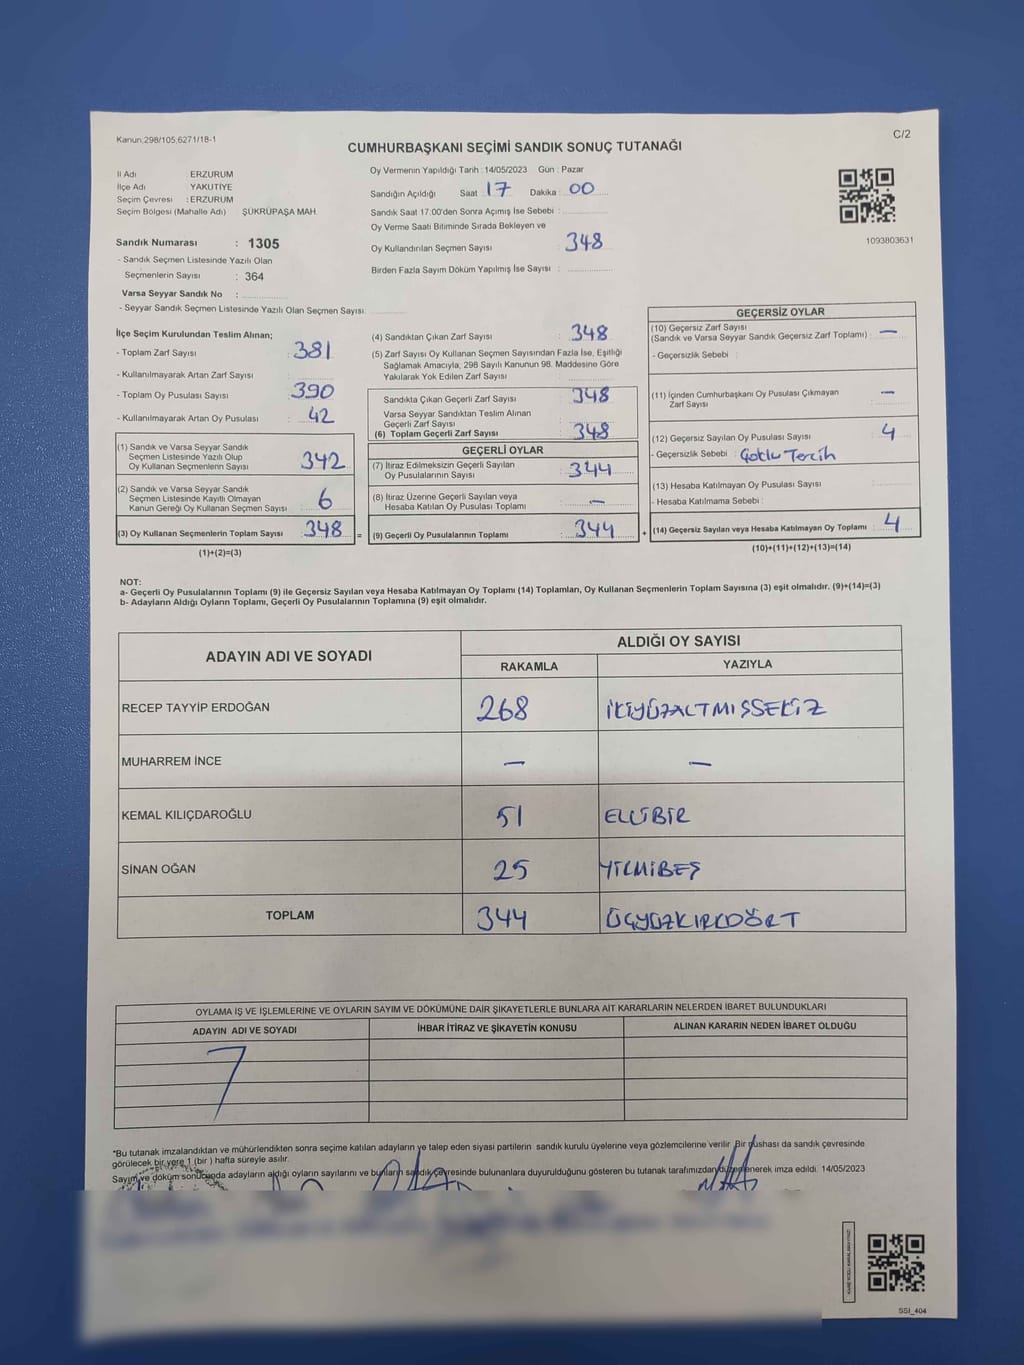 Kanun:298/105,6271/18-1
C/2
CUMHURBAŞKANI SEÇİMİ SANDIK SONUÇ TUTANAĞI
İl Adı ERZURUM
İlçe Adı YAKUTİYE
Seçim Çevresi : ERZURUM
Seçim Bölgesi (Mahalle Adı) ŞÜKRÜPAŞA MAH.
Sandık Numarası : 1305
- Sandık Seçmen Listesinde Yazılı Olan
Seçmenlerin Sayısı : 364
Varsa Seyyar Sandık No :
- Seyyar Sandık Seçmen Listesinde Yazılı Olan Seçmen Sayısı:
Oy Vermenin Yapıldığı Tarih : 14/05/2023 Gün : Pazar
Sandığın Açıldığı Saat 17 Dakika : 00
Sandık Saat 17:00'den Sonra Açımış İse Sebebi :
Oy Verme Saati Bitiminde Sırada Bekleyen ve
Oy Kullandırılan Seçmen Sayısı : 348
Birden Fazla Sayım Döküm Yapılmış İse Sayısı :
1093803631
İlçe Seçim Kurulundan Teslim Alınan;
- Toplam Zarf Sayısı : 381
- Kullanılmayarak Artan Zarf Sayısı :
- Toplam Oy Pusulası Sayısı : 390
- Kullanılmayarak Artan Oy Pusulası : 42
(1) Sandık ve Varsa Seyyar Sandık
Seçmen Listesinde Yazılı Olup
Oy Kullanan Seçmenlerin Sayısı : 342
(2) Sandık ve Varsa Seyyar Sandık
Seçmen Listesinde Kayıtlı Olmayan
Kanun Gereği Oy Kullanan Seçmen Sayısı : 6
(3) Oy Kullanan Seçmenlerin Toplam Sayısı : 348 =
(1)+(2)=(3)
(4) Sandıktan Çıkan Zarf Sayısı : 348
(5) Zarf Sayısı Oy Kullanan Seçmen Sayısından Fazla İse, Eşitliği
Sağlamak Amacıyla, 298 Sayılı Kanunun 98. Maddesine Göre
Yakılarak Yok Edilen Zarf Sayısı :
Sandıkta Çıkan Geçerli Zarf Sayısı : 348
Varsa Seyyar Sandıktan Teslim Alınan
Geçerli Zarf Sayısı :
(6) Toplam Geçerli Zarf Sayısı : 348
GEÇERLİ OYLAR
(7) İtiraz Edilmeksizin Geçerli Sayılan
Oy Pusulalarının Sayısı : 344
(8) İtiraz Üzerine Geçerli Sayılan veya
Hesaba Katılan Oy Pusulası Toplamı : —
(9) Geçerli Oy Pusulalarının Toplamı : 344 +
GEÇERSİZ OYLAR
(10) Geçersiz Zarf Sayısı
(Sandık ve Varsa Seyyar Sandık Geçersiz Zarf Toplamı) : —
- Geçersizlik Sebebi :
(11) İçinden Cumhurbaşkanı Oy Pusulası Çıkmayan
Zarf Sayısı : —
(12) Geçersiz Sayılan Oy Pusulası Sayısı : 4
- Geçersizlik Sebebi : Çoklu Tercih
(13) Hesaba Katılmayan Oy Pusulası Sayısı :
- Hesaba Katılmama Sebebi :
(14) Geçersiz Sayılan veya Hesaba Katılmayan Oy Toplamı : 4
(10)+(11)+(12)+(13)=(14)
NOT:
a- Geçerli Oy Pusulalarının Toplamı (9) ile Geçersiz Sayılan veya Hesaba Katılmayan Oy Toplamı (14) Toplamları, Oy Kullanan Seçmenlerin Toplam Sayısına (3) eşit olmalıdır. (9)+(14)=(3)
b- Adayların Aldığı Oyların Toplamı, Geçerli Oy Pusulalarının Toplamına (9) eşit olmalıdır.
ADAYIN ADI VE SOYADI ALDIĞI OY SAYISI
RAKAMLA YAZIYLA
RECEP TAYYİP ERDOĞAN 268 İKİYÜZALTMIŞSEKİZ
MUHARREM İNCE — —
KEMAL KILIÇDAROĞLU 51 ELLİBİR
SİNAN OĞAN 25 YİRMİBEŞ
TOPLAM 344 ÜÇYÜZKIRKDÖRT
OYLAMA İŞ VE İŞLEMLERİNE VE OYLARIN SAYIM VE DÖKÜMÜNE DAİR ŞİKAYETLERLE BUNLARA AİT KARARLARIN NELERDEN İBARET BULUNDUKLARI
ADAYIN ADI VE SOYADI İHBAR İTİRAZ VE ŞİKAYETİN KONUSU ALINAN KARARIN NEDEN İBARET OLDUĞU
*Bu tutanak imzalandıktan ve mühürlendikten sonra seçime katılan adayların ve talep eden siyasi partilerin sandık kurulu üyelerine veya gözlemcilerine verilir. Bir nushası da sandık çevresinde
görülecek bir yere 1 (bir ) hafta süreyle asılır.
Sayım ve döküm sonucunda adayların aldığı oyların sayılarını ve bunların sandık çevresinde bulunanlara duyurulduğunu gösteren bu tutanak tarafımızdan düzenlenerek imza edildi. 14/05/2023
SSİ_404